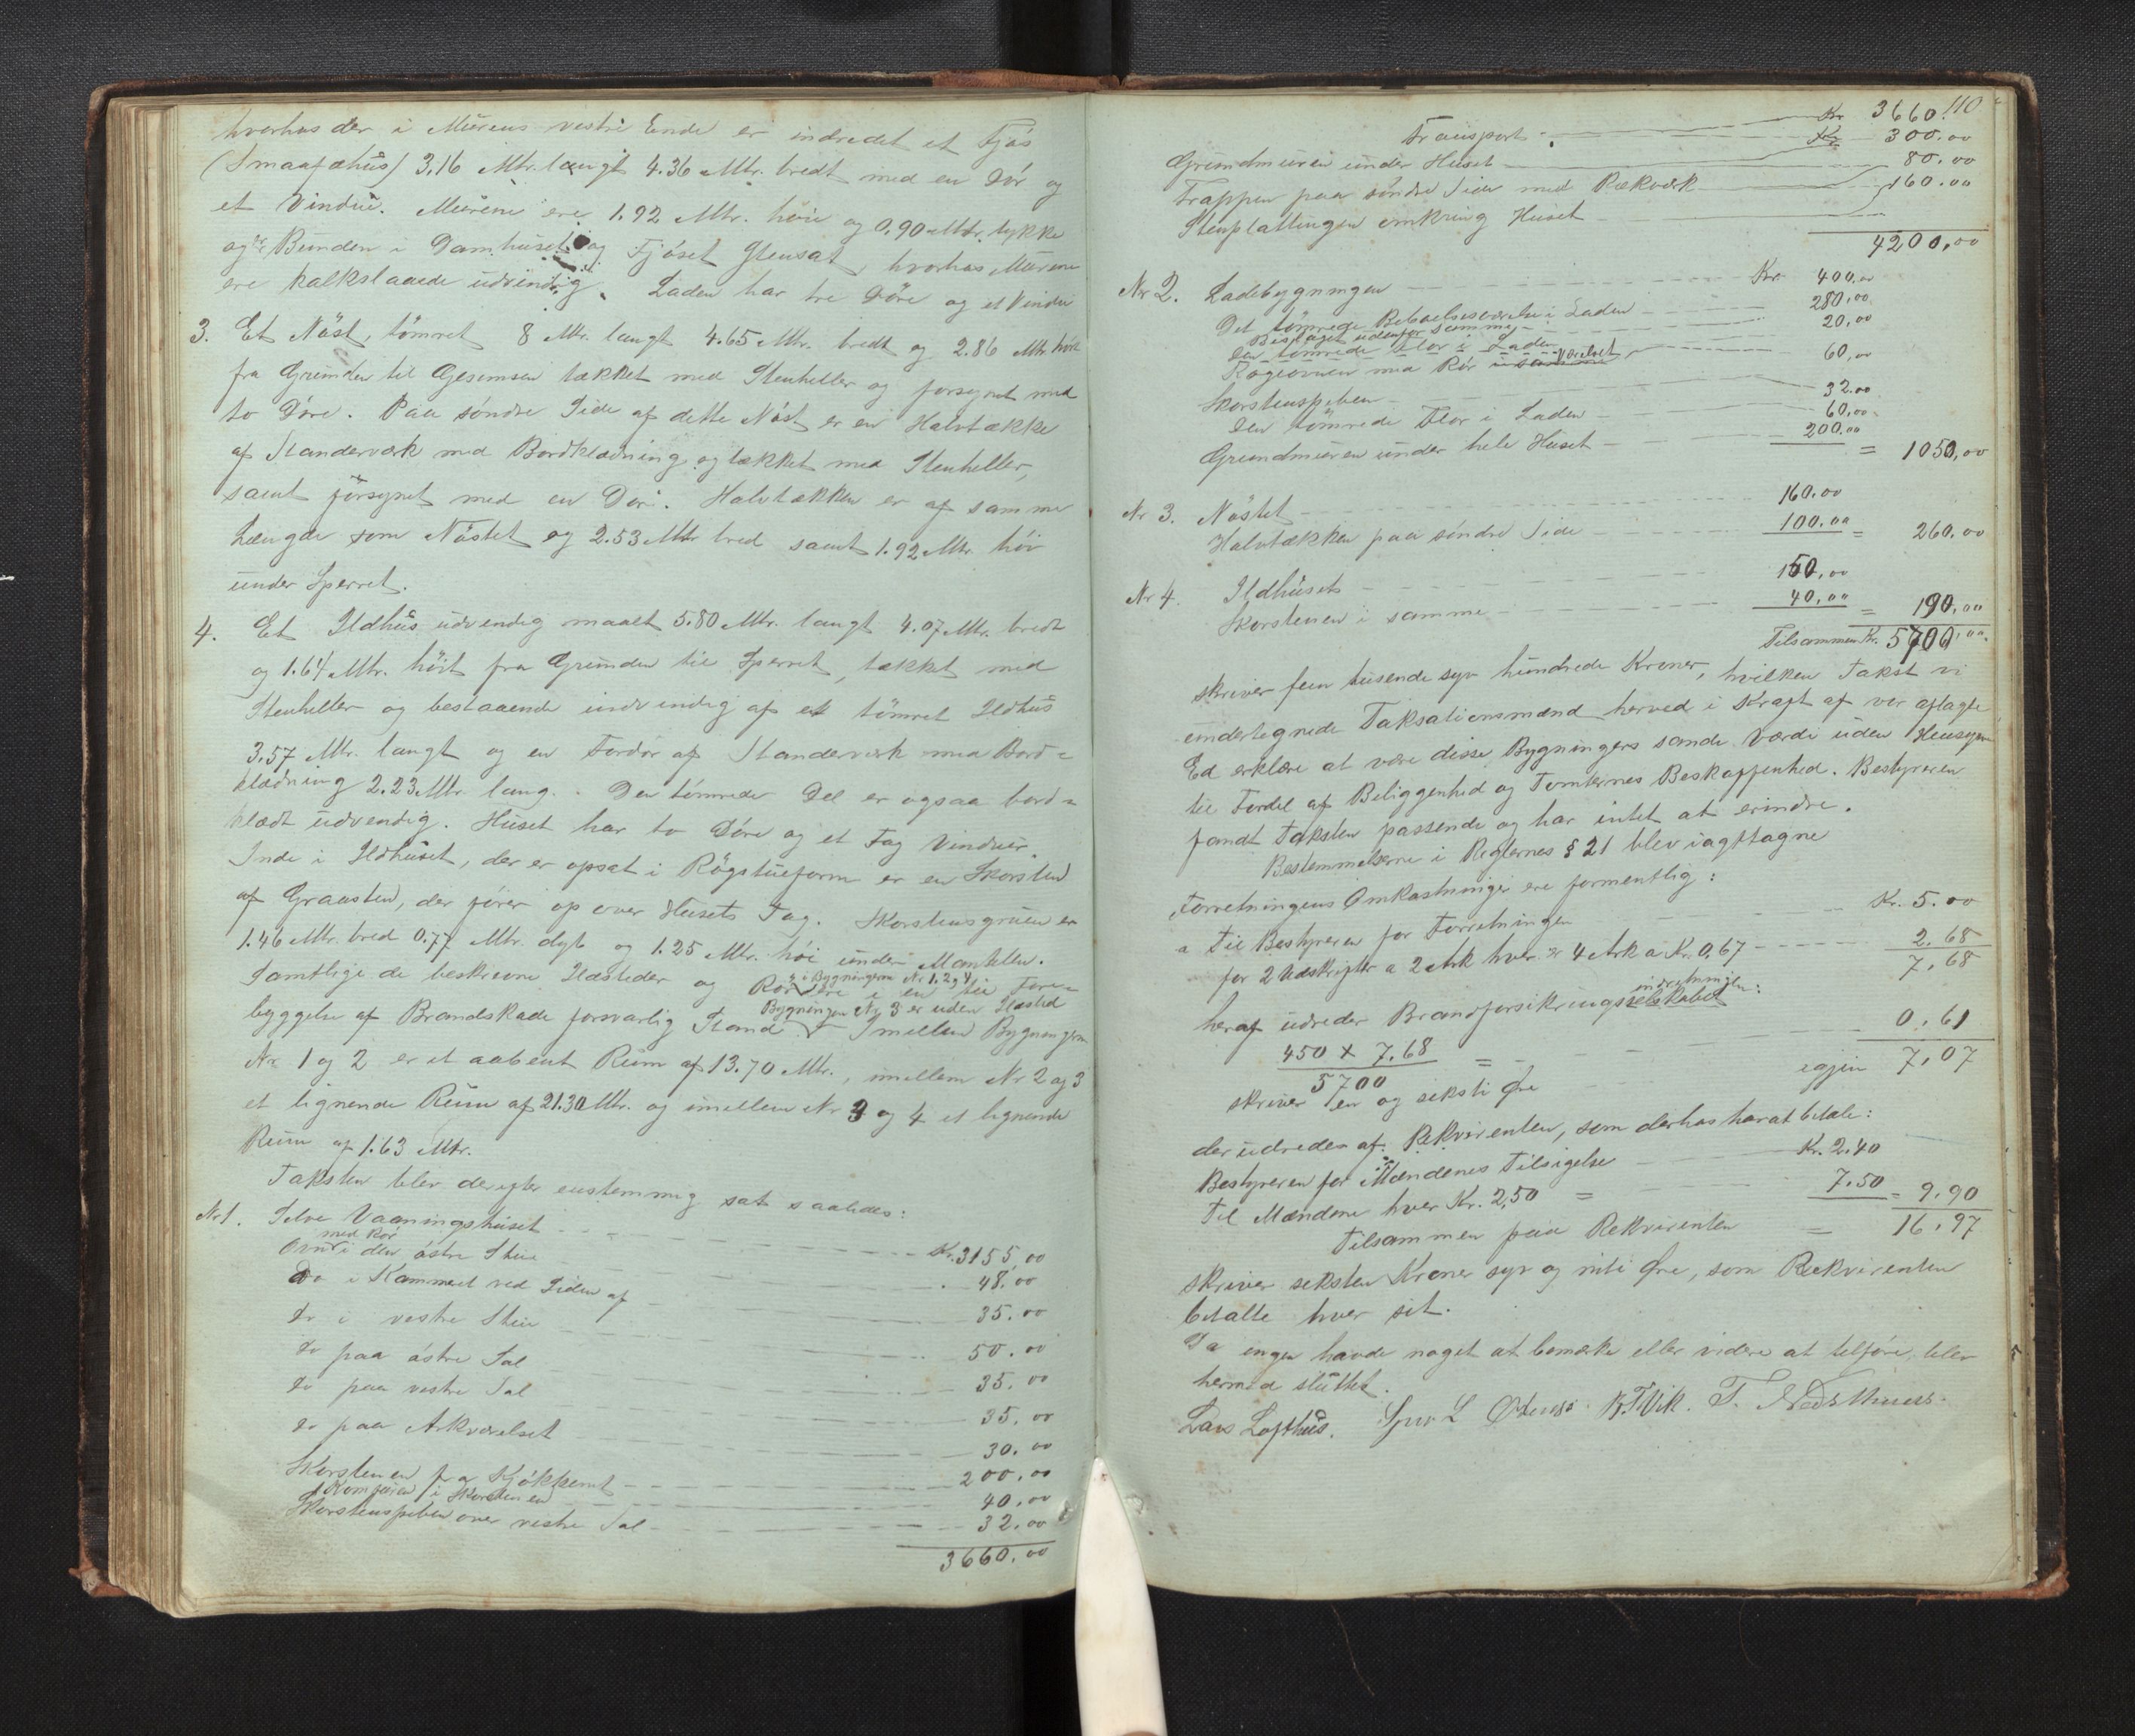 hvorhos der i Murens vestre Ende er indredet et Fjös
(Smaafæhus) 3.16 Mtr. langt 4.36 Mtr. bredt med en Dör og
et Vindue. Murene ere 1.92 Mtr. höie og 0.90 Mtr. tykke
og Bunden i Damhuset og Fjöset Stensat, hvorhos Murene
ere kalkslaaede udvendig. Laden har tre Döre og et Vindu
3. Et Nöst, tömret 8 Mtr. langt 4.65 Mtr. bredt og 2.86 Mtr. höit
fra Grunden til Gesemsen tækket med Stenheller og forsynet med
to Döre. Paa söndre Side af dette Nöst er en Halvtække
af Standerværk med Bordklædning og tækket med Stenheller,
samt forsynet med en Dör. Halvtækken er af samme
Længde som Nöstet og 2.53 Mtr. bred samt 1.92 Mtr. höi
under Sperret.
4. Et Ildhus udvendig maalt 5.80 Mtr. langt 4.07 Mtr. bredt
og 1.64 Mtr. höit fra Grunden til Sperret, tækket med
Stenheller og bestaaende indvendig af et tömret Ildhus
3.57 Mtr. langt og en Fordör af Standerværk med Bord-
klædning 2.23 Mtr. lang. Den tömrede Del er ogsaa bord-
klædt udvendig. Huset har to Döre og et Fag Vinduer
Inde i Ildhuset, der er opsat i Rögstueform er en Skorsten
af Graasten, der förer op over Husets Tag. Skorstensgruen er
1.46 Mtr. bred 0.77 Mtr. dyb og 1.25 Mtr. höi under Mantelen.
Samtlige de beskrevne Ildsteder og Rör i Bygningerne Nr 1. 2 og 4 ere i en til Fore-
byggelse af Brandskade forsvarlig Stand Bygningen Nr 3 er uden Ildsted Imellem Bygningerne
Nr 1 og 2 er et aabent Rum af 13.70 Mtr., imellem Nr 2 og 3
et lignende Rum af 21.30 Mtr. og imellem Nr 3 og 4 et lignende
Rum af 1.63 Mtr.
Taksten blev derefter enstemmig sat saaledes:
Nr 1. Selve Vaaningshuset Kr. 3155,00
Ovn med Rör i den östre Stue 48.00
Do i Kammeret ved Siden af 35.00
do i vestre Stue 50.00
do paa östre Sal 35.00
do paa vestre Sal 35.00
do paa Arkværelset 30.00
Skorstenen fra Kjökkenet 200.00
Komfuren i Skorstenen 40.00
Skorstenspiben over vestre Sal 32.00
3660.00
110
Transport Kr 3660.
Grundmuren under Huset Kr 300.00
Trappen paa söndre Side med Rækværk 80.00
Stenplattingen omkring Huset 160.00
4200,00
Nr 2. Ladebygningen Kr. 400,00
Det tömrede Beboelsesværelse i Laden 280,00
Bislaget udenfor samme 20,00
den tömrede Flor i Laden
Kogeovnen med Rör i Værelset 60,00
Skorstenspiben 32.00
den tömrede Flor i Laden 60,00
Grundmuren under hele Huset 200.00 = 1050,00
Nr 3. Nöstet 160.00
Halvtækken paa söndre Side 100.00 = 260.00
Nr 4. Ildhuset 150,00
Skorstenen i samme 40,00 = 190,00
Tilsammen Kr. 5700,00
skriver fem tusende syv hundrede Kroner, hvilken Takst vi
undertegnede Taksationsmænd herved i Kraft af vor aflagte
Ed erklære at være disse Bygningers sande Værdi uden Hensyn
til Fordel af Beliggenhed og Tomternes Beskaffenhed. Bestyreren
fandt Taksten passende og har intet at erindre.
Bestemmelserne i Reglernes § 21 blev iagttagne
Forretningens Omkostninger ere forment­lig:
a Til Bestyreren for Forretningen Kr. 5.00
for 2 Udskrifter a 2 Ark hver er 4 Ark a Kr. 0,67 2.68
7.68
heraf udreder Brandforsikringsselskabet indretningen:
450 x 7.68 = 0.61
5700
skriver en og seksti Øre igjen 7.07
der udredes af Rekvirenten, som derhos har at betale:
Bestyreren for Mændenes Tilsigelse Kr. 2.40
Til Mændene hver Kr. 2,50 = 7.50 = 9.90
Tilsammen paa Rekvirenten = 16,97
skriver seksten Kroner syv og niti Øre, som Rekvirenten
betalte hver sit.
Da ingen havde noget at bemærke eller videre at tilföre, blev
hermed sluttet.
Lars Lofthus. L B. T. Vik. T.